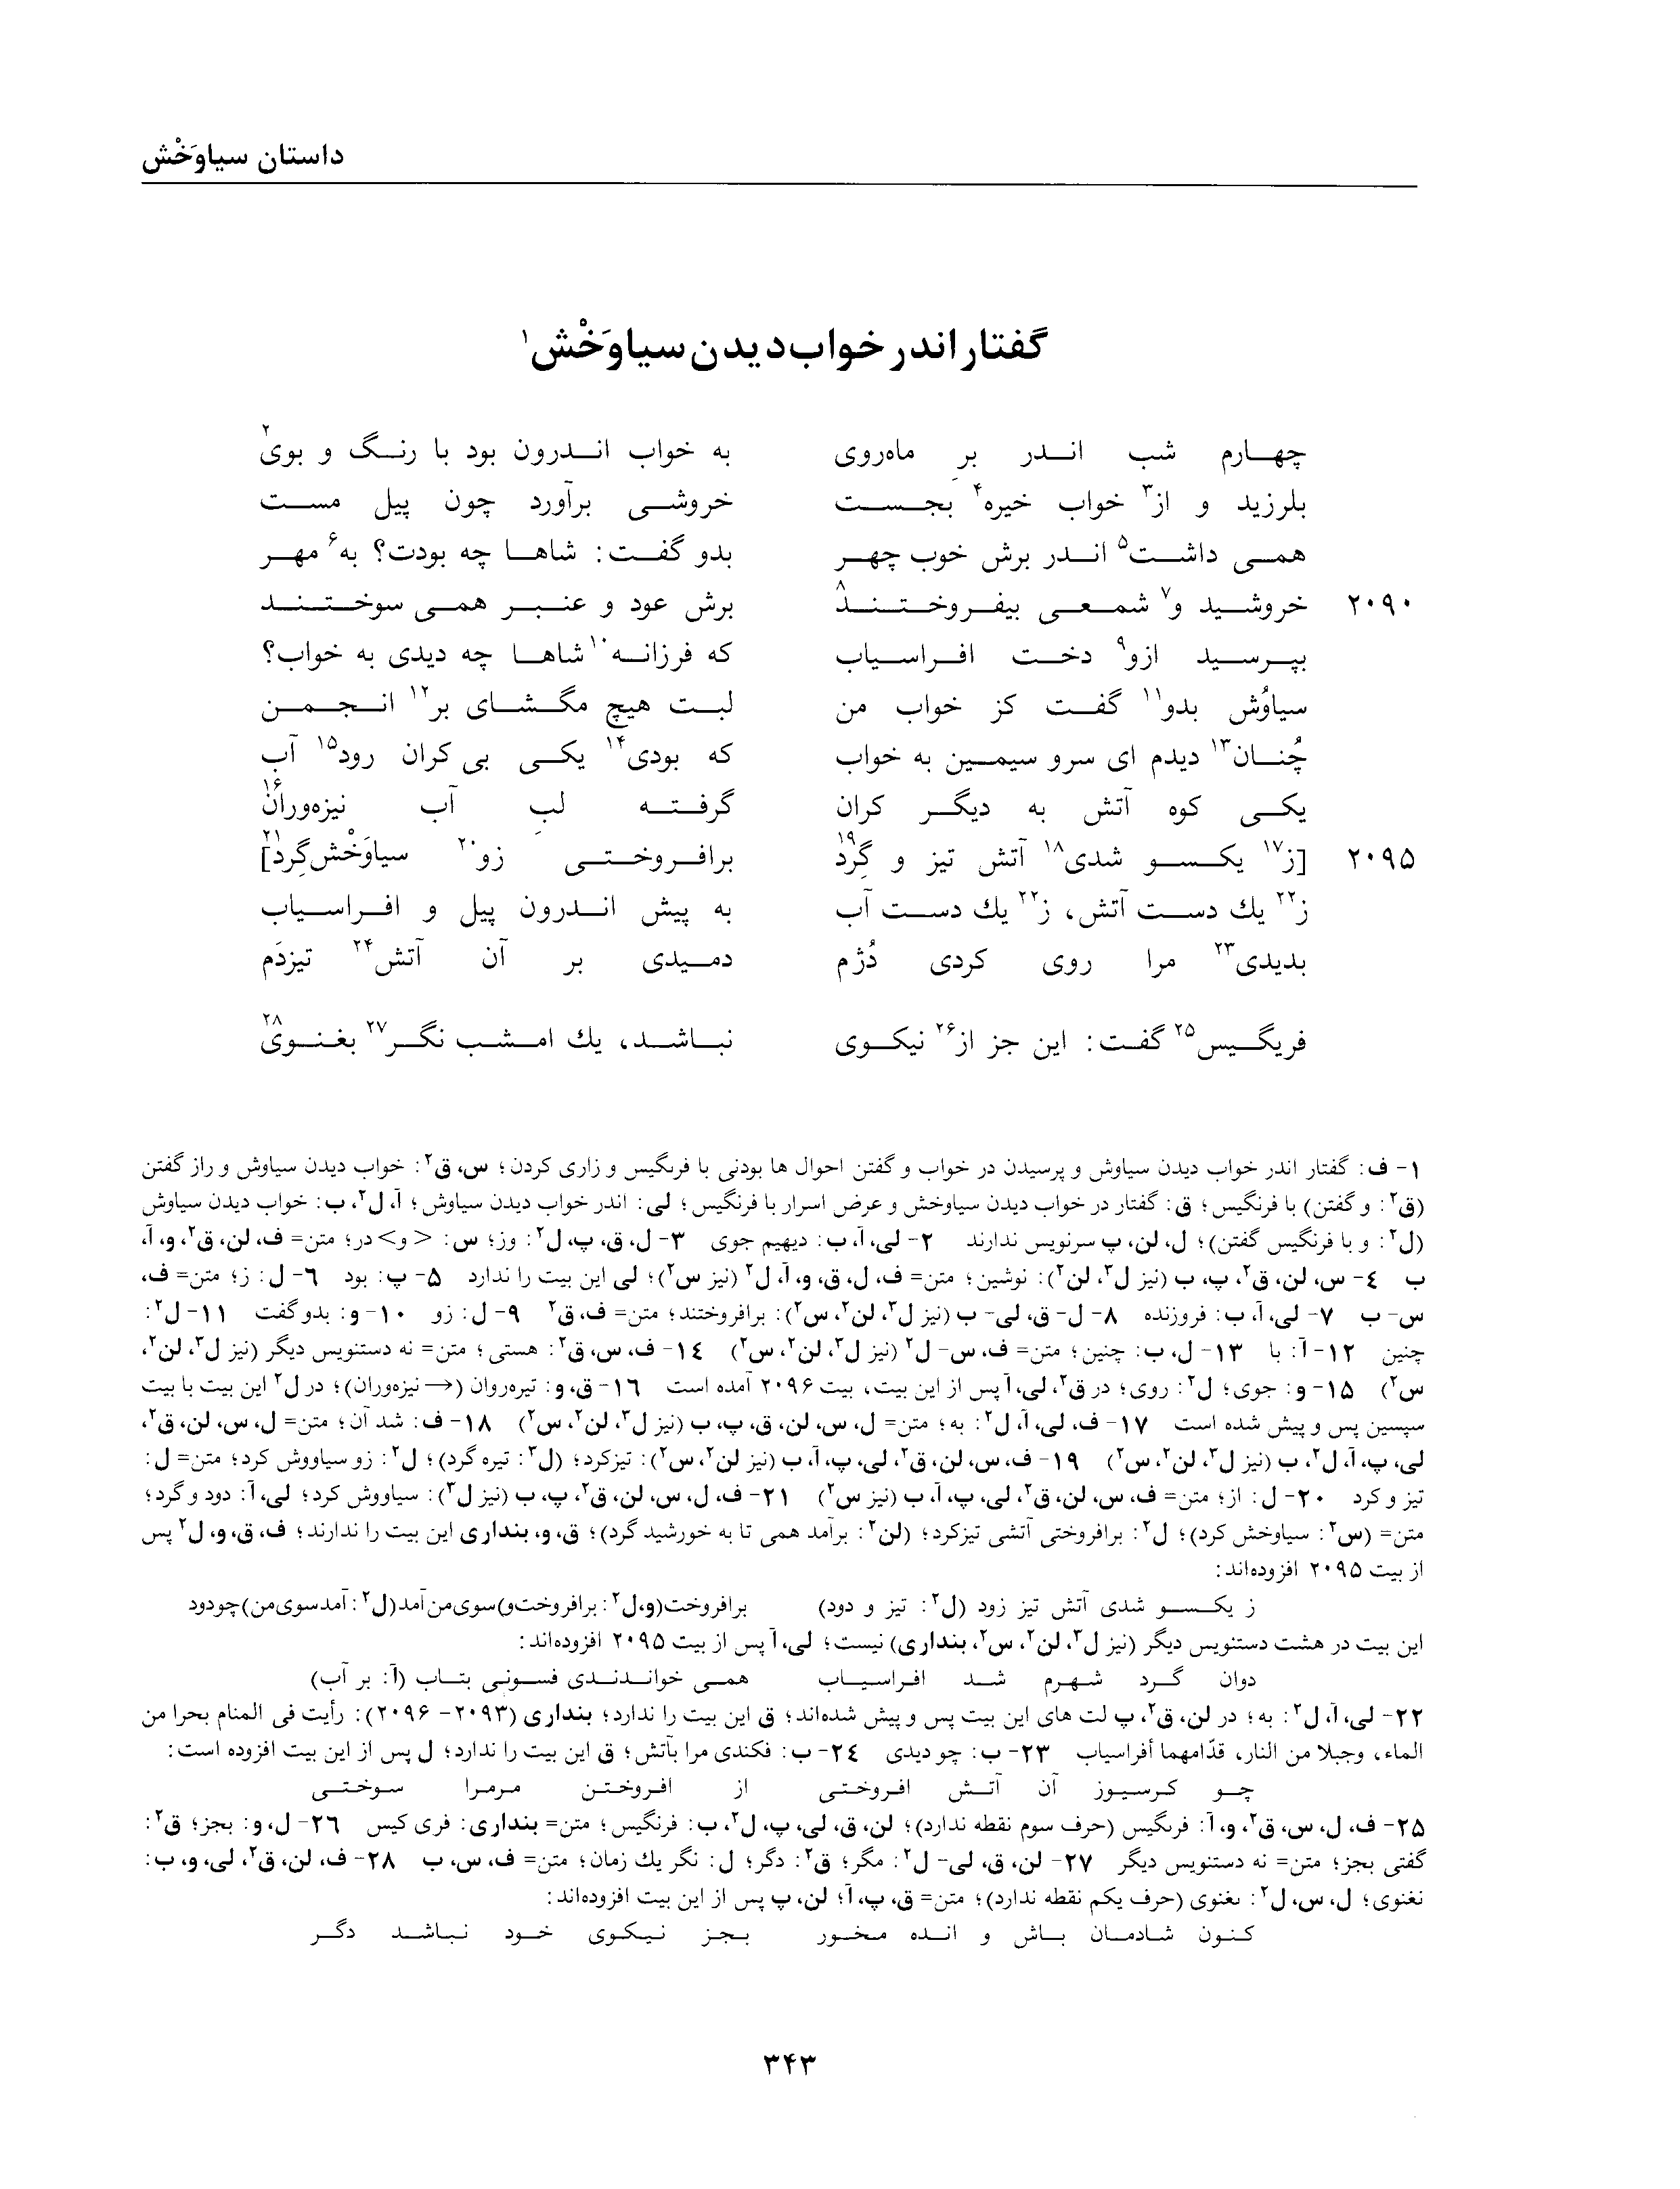 داستان سیاوَخْش
گفتار اندر خواب دیدن سیاوَخْش۱
چهارم شب اندر برِ ماه‌روی به خواب اندرون بود با رنگ و بوی۲
بلرزید و از۳ خواب خیره۴ بجست خروشی برآورد چون پیل مست
همی داشت۵ اندر برش خوب چهر بدو گفت: شاها چه بودت؟ به۶ مهر
۲۰۹۰ خروشید و۷ شمعی بیفروختند۸ برش عود و عنبر همی سوختند
بپرسید ازو۹ دخت افراسیاب که فرزانه۱۰ شاها چه دیدی به خواب؟
سیاوُش بدو۱۱ گفت کز خواب من لبت هیچ مگشای بر۱۲ انجمن
چُنان۱۳ دیدم ای سرو سیمین به خواب که بودی۱۴ یکی بی‌کران رود۱۵ آب
یکی کوه آتش به دیگر کران گرفته لبِ آب نیزه‌وران۱۶
۲۰۹۵ [ز۱۷ یکسو شدی۱۸ آتش تیز و گِرد۱۹ برافروختی زو۲۰ سیاوَخْش‌گِرد۲۱]
ز۲۲ یك دست آتش، ز۲۲ یك دست آب به پیش اندرون پیل و افراسیاب
بدیدی۲۳ مرا روی کردی دُژم دمیدی بر آن آتش۲۴ تیزدَم
فریگیس۲۵ گفت: این جز از۲۶ نیکوی نباشد، یك امشب نگر۲۷ بغنوی۲۸
۱- ف: گفتار اندر خواب دیدن سیاوش و پرسیدن در خواب و گفتن احوال ها بودنی با فرىگیس و زاری کردن؛ س، ق۲: خواب دیدن سیاوش و راز گفتن
(ق۲: و گفتن) با فرنگیس؛ ق: گفتار در خواب دیدن سیاوخش و عرض اسرار با فرنگیس؛ لی: اندر خواب دیدن سیاوش؛ آ، ل۲، ب: خواب دیدن سیاوش
(ل۲: و با فرنگیس گفتن)؛ ل، لن، پ سرنویس ندارند ۲- لی، آ، ب: دیهیم جوی ۳- ل، ق، پ، ل۲: وز؛ س: <و>در؛ متن= ف، لن، ق۲، و، آ،
ب ٤- س، لن، ق۲، پ، ب (نیز ل۳، لن۲): نوشین؛ متن= ف، ل، ق، و، آ، ل۲ (نیز س۲)؛ لی این بیت را ندارد ۵- پ: بود ٦- ل: ز؛ متن= ف،
س- ب ۷- لی، آ، ب: فروزنده ۸- ل- ق، لی- ب (نیز ل۳، لن۲، س۲): برافروختند؛ متن= ف، ق۲ ۹- ل: زو ۱۰- و: بدو گفت ۱۱- ل۲:
چنین ۱۲- آ: با ۱۳- ل، ب: چنین؛ متن= ف، س- ل۲ (نیز ل۳، لن۲، س۲) ۱٤- ف، س، ق۲: هستی؛ متن= نه دستنویس دیگر (نیز ل۳، لن۲،
س۲) ۱۵- و: جوی؛ ل۲: روی؛ در ق۲، لی، آ پس از این بیت، بیت ۲۰۹۶ آمده است ۱٦- ق، و: تیره‌روان (→ نیزه‌وران)؛ در ل۲ این بیت با بیت
سپسین پس و پیش شده است ۱۷- ف، لی، آ، ل۲: به؛ متن= ل، س، لن، ق، پ، ب (نیز ل۳، لن۲، س۲) ۱۸- ف: شد آن؛ متن= ل، س، لن، ق۲،
لی، پ، آ، ل۲، ب (نیز ل۳، لن۲، س۲) ۱۹- ف، س، لن، ق۲، لی، پ، آ، ب (نیز لن۲، س۲): تیزکرد؛ (ل۳: تیره گرد)؛ ل۲: زو سیاووش کرد؛ متن= ل:
تیز و کرد ۲۰- ل: از؛ متن= ف، س، لن، ق۲، لی، پ، آ، ب (نیز س۲) ۲۱- ف، ل، س، لن، ق۲، پ، ب (نیز ل۳): سیاووش کرد؛ لی، آ: دود و گرد؛
متن= (س۲: سیاوخش کرد)؛ ل۲: برافروختی آتشی تیزکرد؛ (لن۲: برآمد همی تا به خورشید گرد)؛ ق، و، بنداری این بیت را ندارند؛ ف، ق، و، ل۲ پس
از بیت ۲۰۹۵ افزوده‌اند:
ز یکسو شدی آتش تیز زود (ل۲: تیز و دود) برافروخت (و، ل۲: برافروخت و) سوی من آمد (ل۲: آمد سوی من) چو دود
این بیت در هشت دستنویس دیگر (نیز ل۳، لن۲، س۲، بنداری) نیست؛ لی، آ پس از بیت ۲۰۹۵ افزوده‌اند:
دوان گرد شهرم شد افراسیاب همی خواندندی فسونی بتاب (آ: بر آب)
۲۲- لی، آ، ل۲: به؛ در لن، ق۲، پ لت های این بیت پس و پیش شده‌اند؛ ق این بیت را ندارد؛ بنداری (۲۰۹۳- ۲۰۹۶): رأیت فی المنام بحرا من
الماء، وجبلا من النار، قدّامهما أفراسیاب ۲۳- ب: چو دیدی ۲٤- ب: فکندی مرا بآتش؛ ق این بیت را ندارد؛ ل پس از این بیت افزوده است:
چو کرسیوز آن آتش افروختی از افروختن مرمرا سوختی
۲۵- ف، ل، س، ق۲، و، آ: فرىگیس (حرف سوم نقطه ندارد)؛ لن، ق، لی، پ، ل۲، ب: فرنگیس؛ متن= بنداری: فری کیس ۲٦- ل، و: بجز؛ ق۲:
گفتی بجز؛ متن= نه دستنویس دیگر ۲۷- لن، ق، لی- ل۲: مگر؛ ق۲: دگر؛ ل: نگر یك زمان؛ متن= ف، س، ب ۲۸- ف، لن، ق۲، لی، و، ب:
نغنوی؛ ل، س، ل۲: ىغنوی (حرف یکم نقطه ندارد)؛ متن= ق، پ، آ؛ لن، پ پس از این بیت افزوده‌اند:
کنون شادمان باش و انده مخور بجز نیکوی خود نباشد دگر
۳۴۳